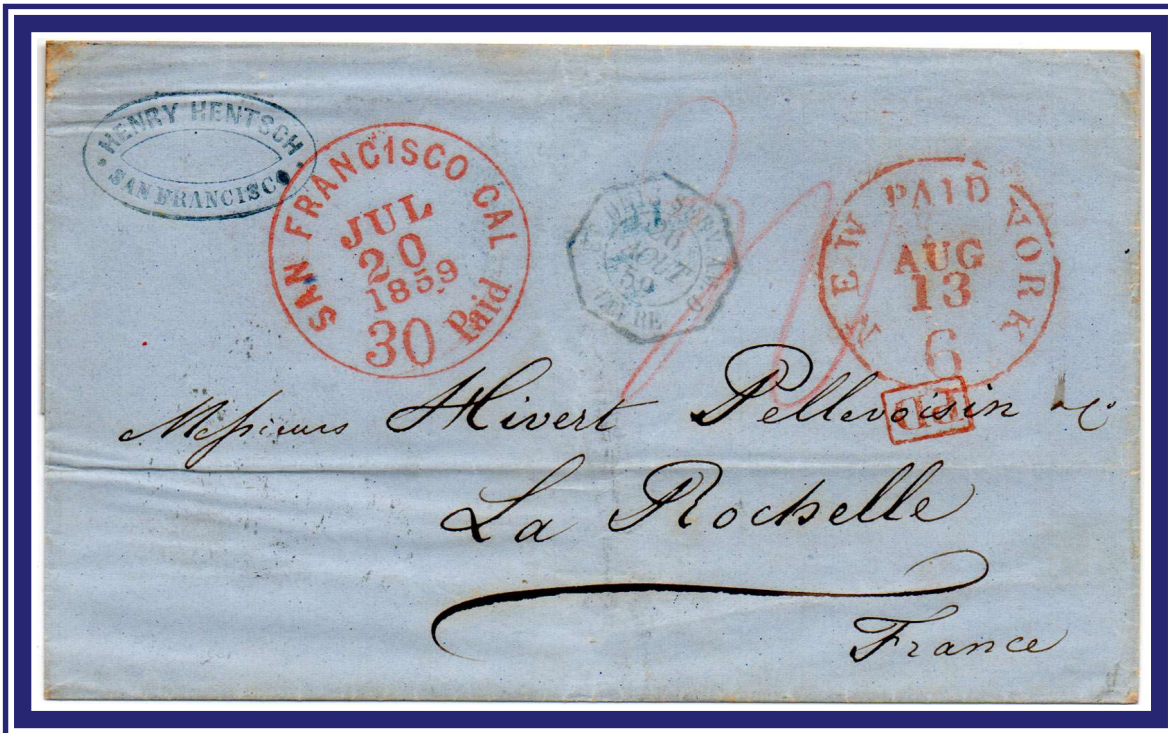 HENRY HENTSCH
SAN FRANCISCO
SAN FRANCISCO CAL
JUL
20
1859
30 Paid
SERV. AM. D
26
AOUT
59
HAVRE
NEW YORK
PAID
AUG
13
6
PD
Messieurs Hivert Pellevoisin &c
La Rochelle
France